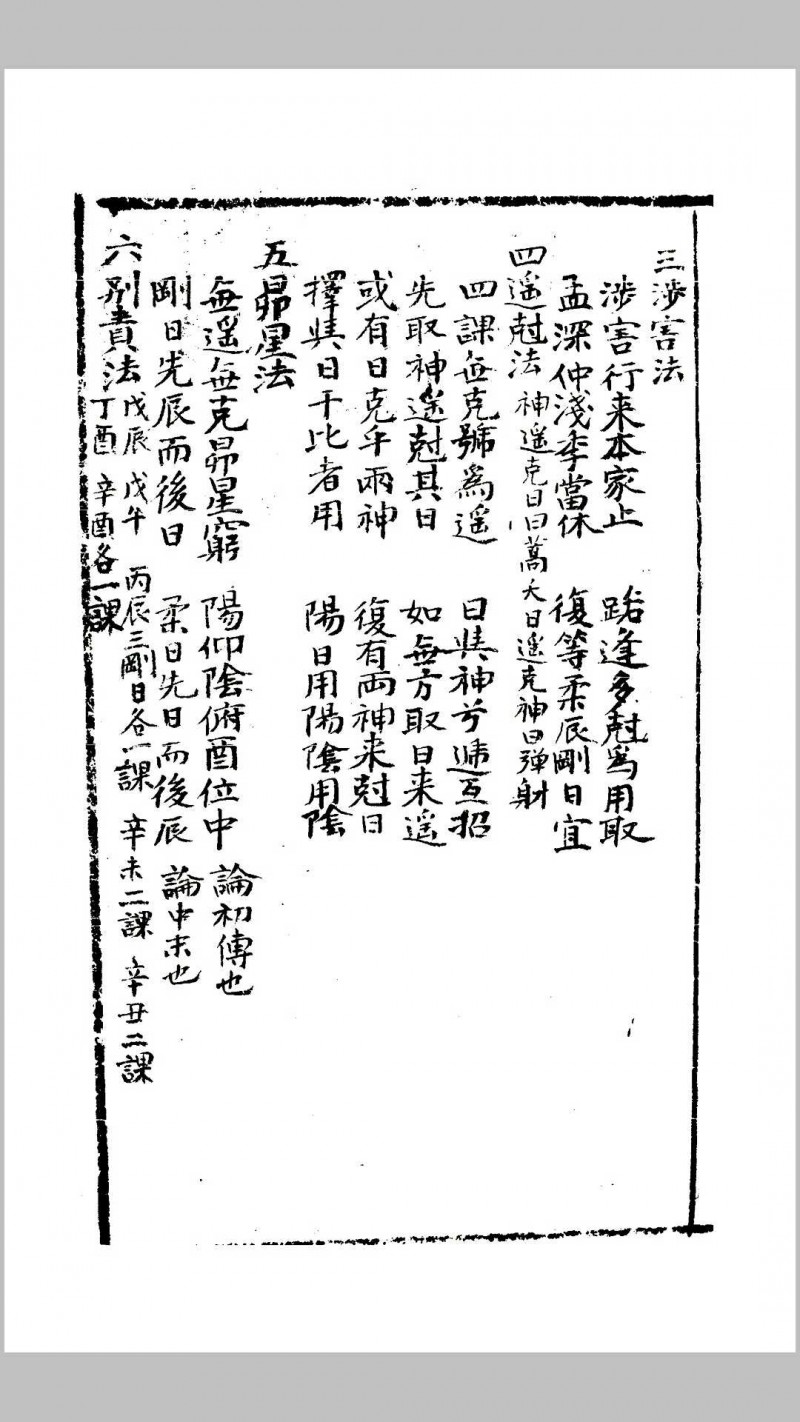 三涉害法
涉害行来本家止　路逢多尅為用取
孟深仲淺季當休　復等柔辰剛日宜
四遥尅法　神遥克日曰蒿矢日遥克神曰弹射
四課無克號為遥　日與神兮遞互招
先取神遥尅其日　如無方取日来遥
或有日克乎兩神　復有兩神来尅日
擇與日干比者用　陽日用陽陰用陰
五昴星法
無遥無克昴星窮　陽仰陰俯酉位中　論初傳也
剛日先辰而後日　柔日先日而後辰　論中末也
六别責法　戊辰　戊午　丙辰三剛日各一課　辛未二課　辛丑二課
丁酉　辛酉各一課